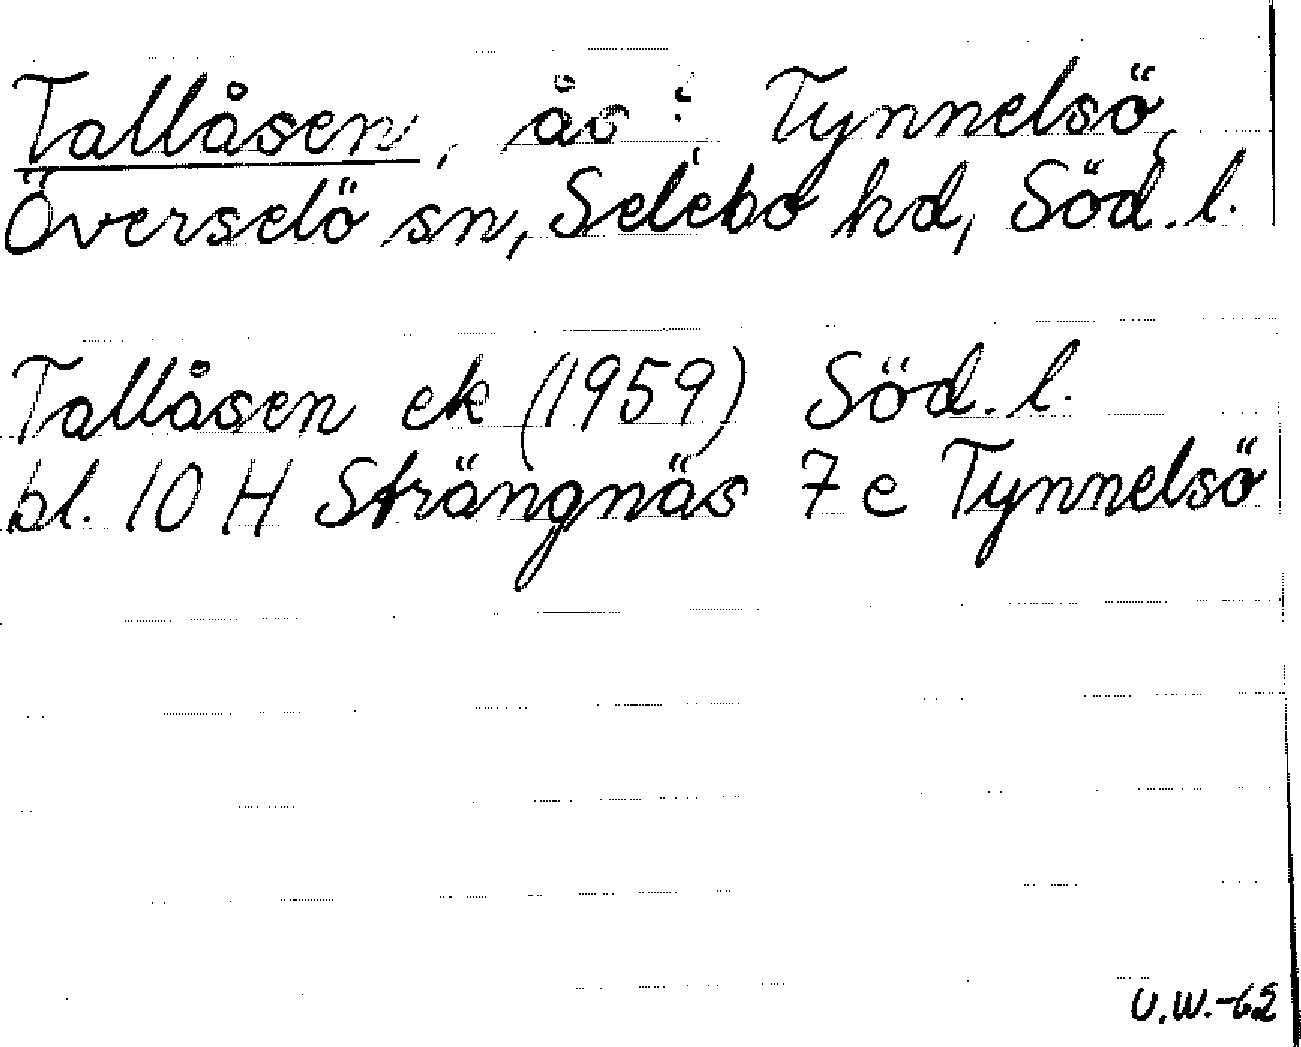 Tallåsen, ås i Tynnelsö,
Överselö sn, Selebo hd, Söd. l.
Tallåsen ek (1959) Söd. l.
bl. 10 H Strängnäs 7 e Tynnelsö
U.W.-62